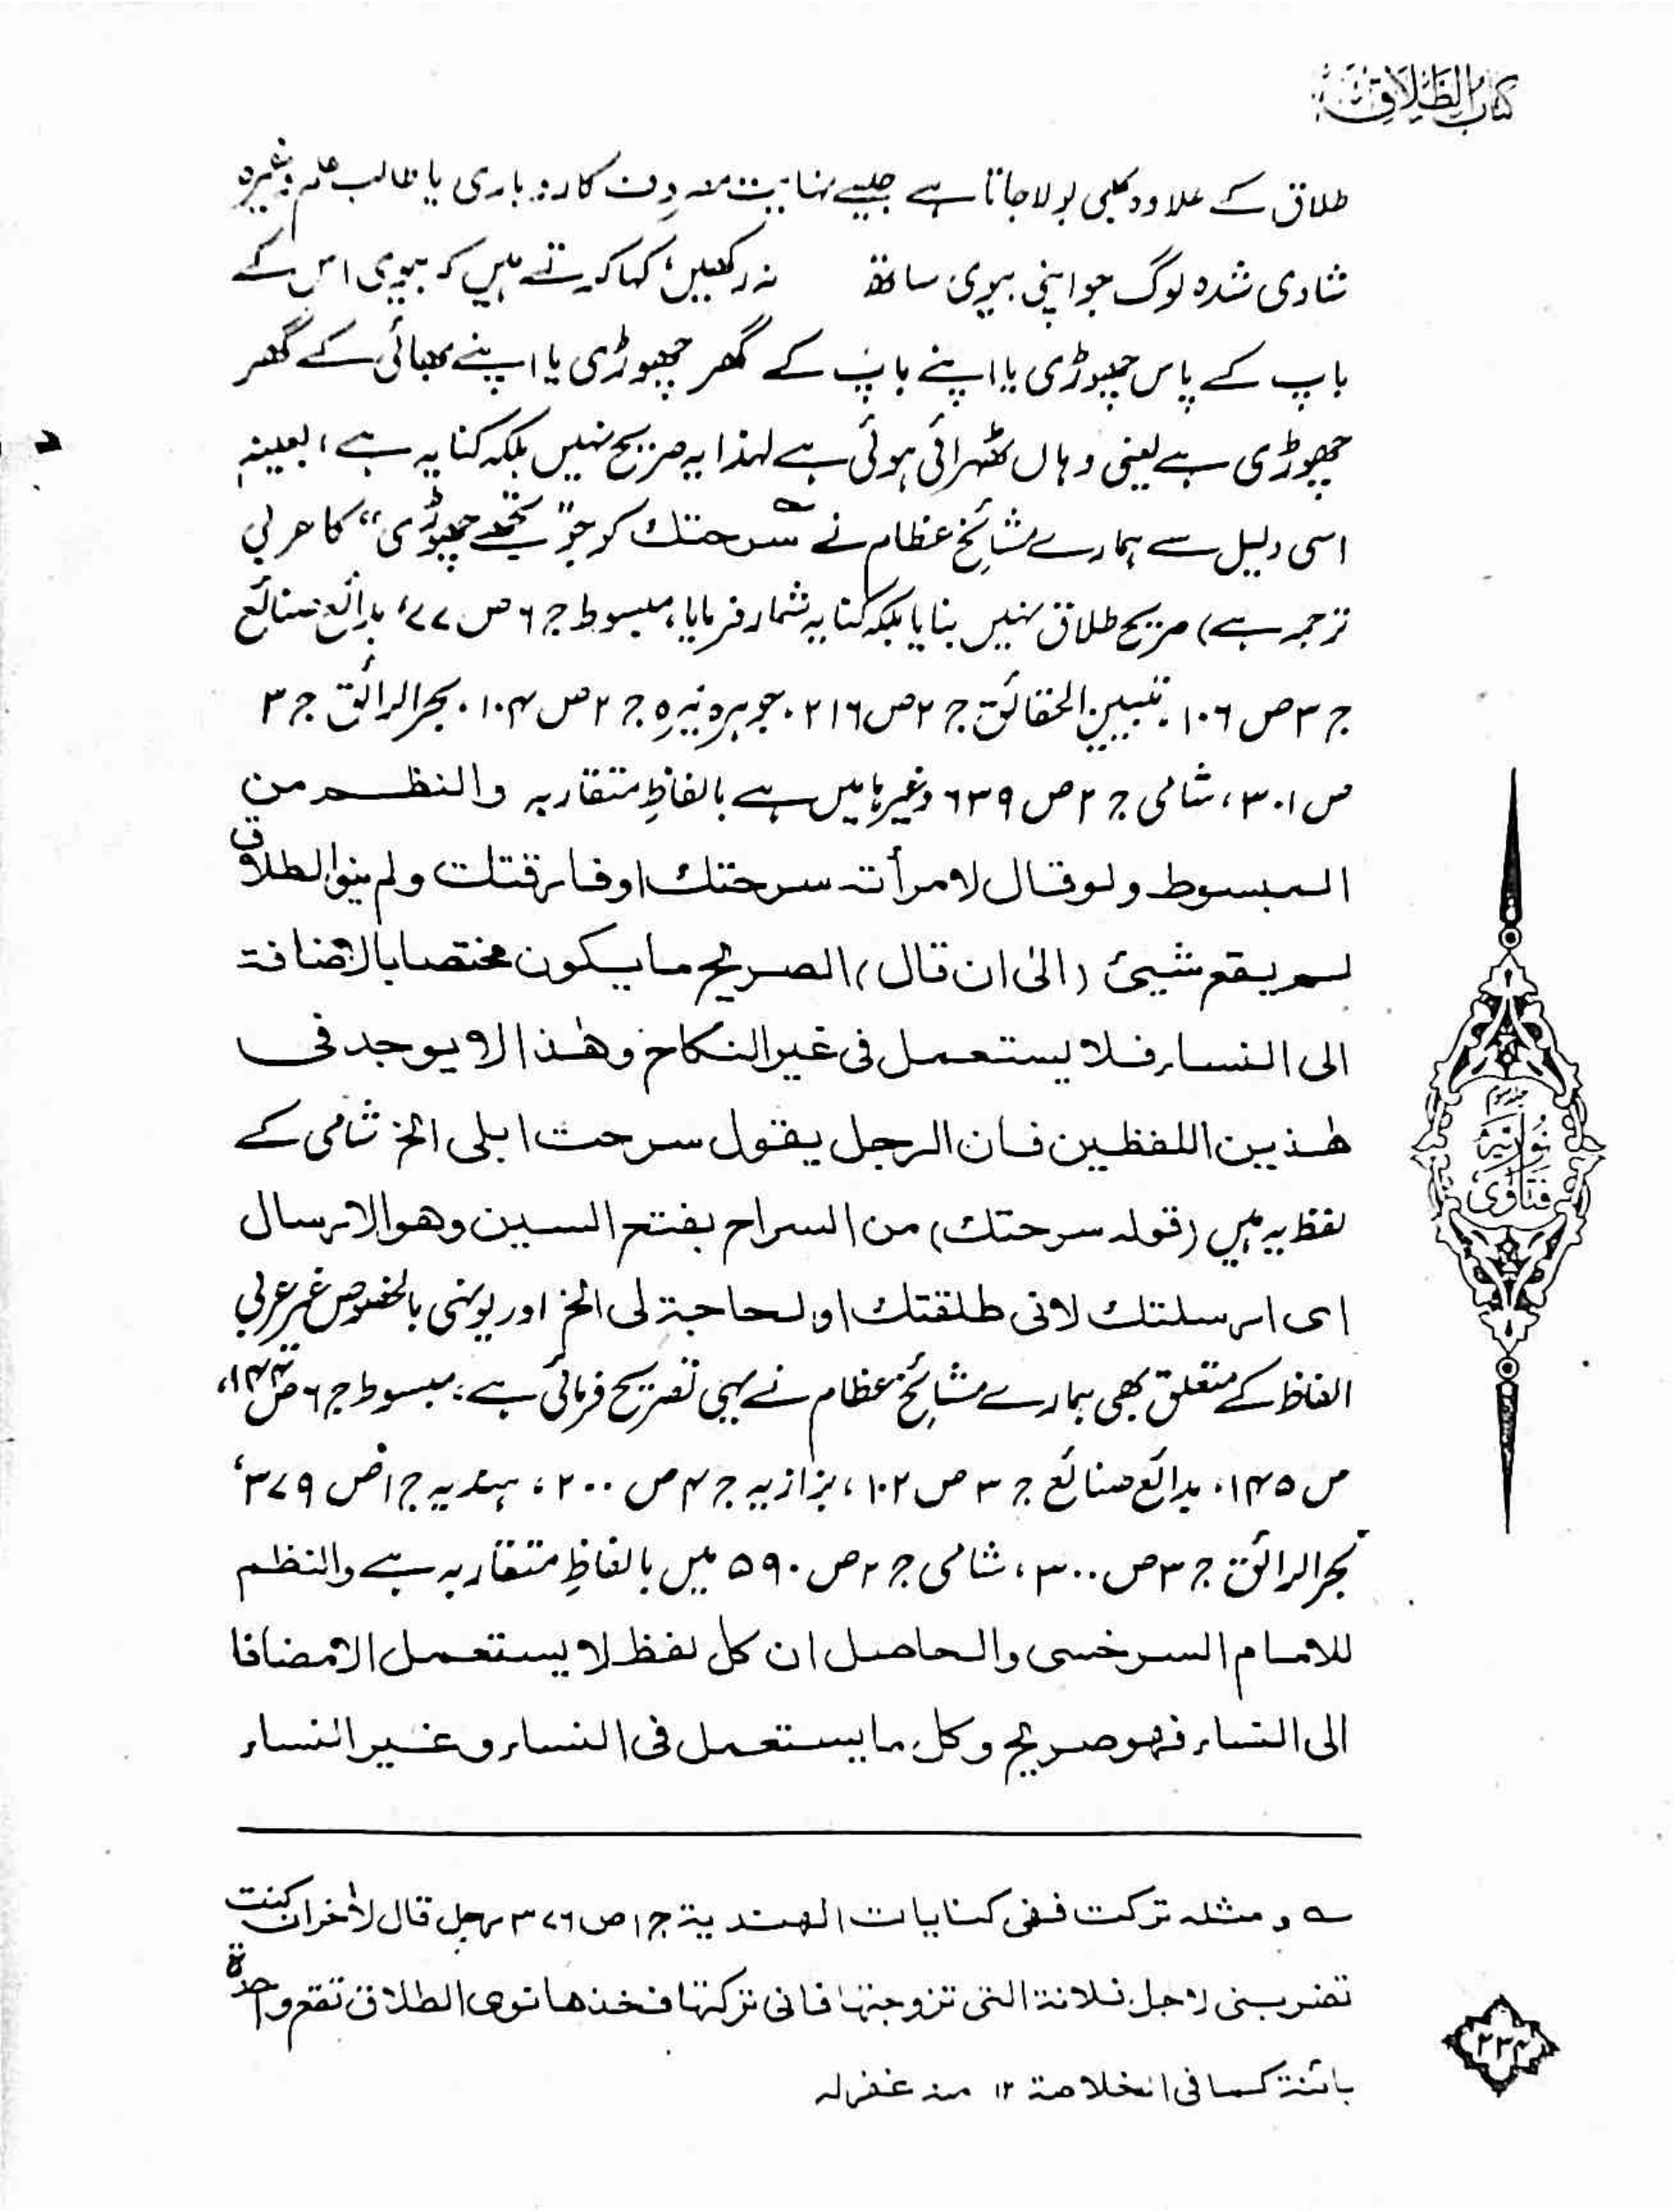 کتاب الطلاق
طلاق کے علاوہ بھی بولا جاتا ہے جیسے نہایت مصروف کاروباری یا طالب علم وغیرہ
شادی شدہ لوگ جو اپنی بیوی ساتھ نہ رکھیں، کہا کرتے ہیں کہ بیوی اس کے
باپ کے پاس چھوڑی یا اپنے باپ کے گھر چھوڑی یا اپنے بھائی کے گھر
چھوڑی ہے یعنی وہاں ٹھہرائی ہوئی ہے لہذا یہ صریح نہیں بلکہ کنایہ ہے، بعینہ
اسی دلیل سے ہمارے مشائخ عظام نے سرحتك کو جو "تجھے چھوڑی" کا عربی
ترجمہ ہے) صریح طلاق نہیں بنایا بلکہ کنایہ شمار فرمایا، مبسوط ج ۶ ص ۷۷، بدائع صنائع
ج ۳ ص ۱۰۶، تبیین الحقائق ج ۲ ص ۲۱۶، جوہرہ نیرہ ج ۲ ص ۱۰۴، بحر الرائق ج ۳
ص ۳۰۱، شامی ج ۲ ص ۶۳۹ وغیرہا میں ہے بالفاظِ متقاربہ والنظم من
المبسوط ولو قال لامرأته سرحتك او فارقتك ولم ینو الطلاق
لم یقع شیئ (الیٰ ان قال) الصریح ما یکون مختصا بالاضافة
الی النساء فلا یستعمل فی غیر النکاح وھٰذا لا یوجد فی
ھٰذین اللفظین فان الرجل یقول سرحت ابلی الخ شامی کے
لفظ یہ ہیں (قوله سرحتك) من السراح بفتح السین وھو الارسال
ای ارسلتك لانی طلقتك او لحاجة لی الخ اور یونہی بالخصوص غیر عربی
الفاظ کے متعلق بھی ہمارے مشائخ عظام نے یہی تصریح فرمائی ہے: مبسوط ج ۶ ص ۱۴۴،
ص ۱۴۵، بدائع صنائع ج ۳ ص ۱۰۲، بزازیہ ج ۴ ص ۲۰۰، ہندیہ ج ۱ ص ۳۷۹،
بحر الرائق ج ۳ ص ۳۰۰، شامی ج ۲ ص ۵۹۰ میں بالفاظِ متقاربہ ہے والنظم
للامام السرخسی والحاصل ان کل لفظ لا یستعمل الا مضافا
الی النساء فہو صریح وکل ما یستعمل فی النساء وغیر النساء
نوریہ
فتاوٰی
ے ومثله ترکت ففی کنایات الھندیة ج ۱ ص ۳۷۶ رجل قال لاٰخر ان کنت
تضربنی لاجل فلانة التی تزوجتھا فانی ترکتھا فخذھا نوی الطلاق تقع واحدة
بائنة کما فی الخلاصة ۱۲ منہ غفرلہ
۲۳۴